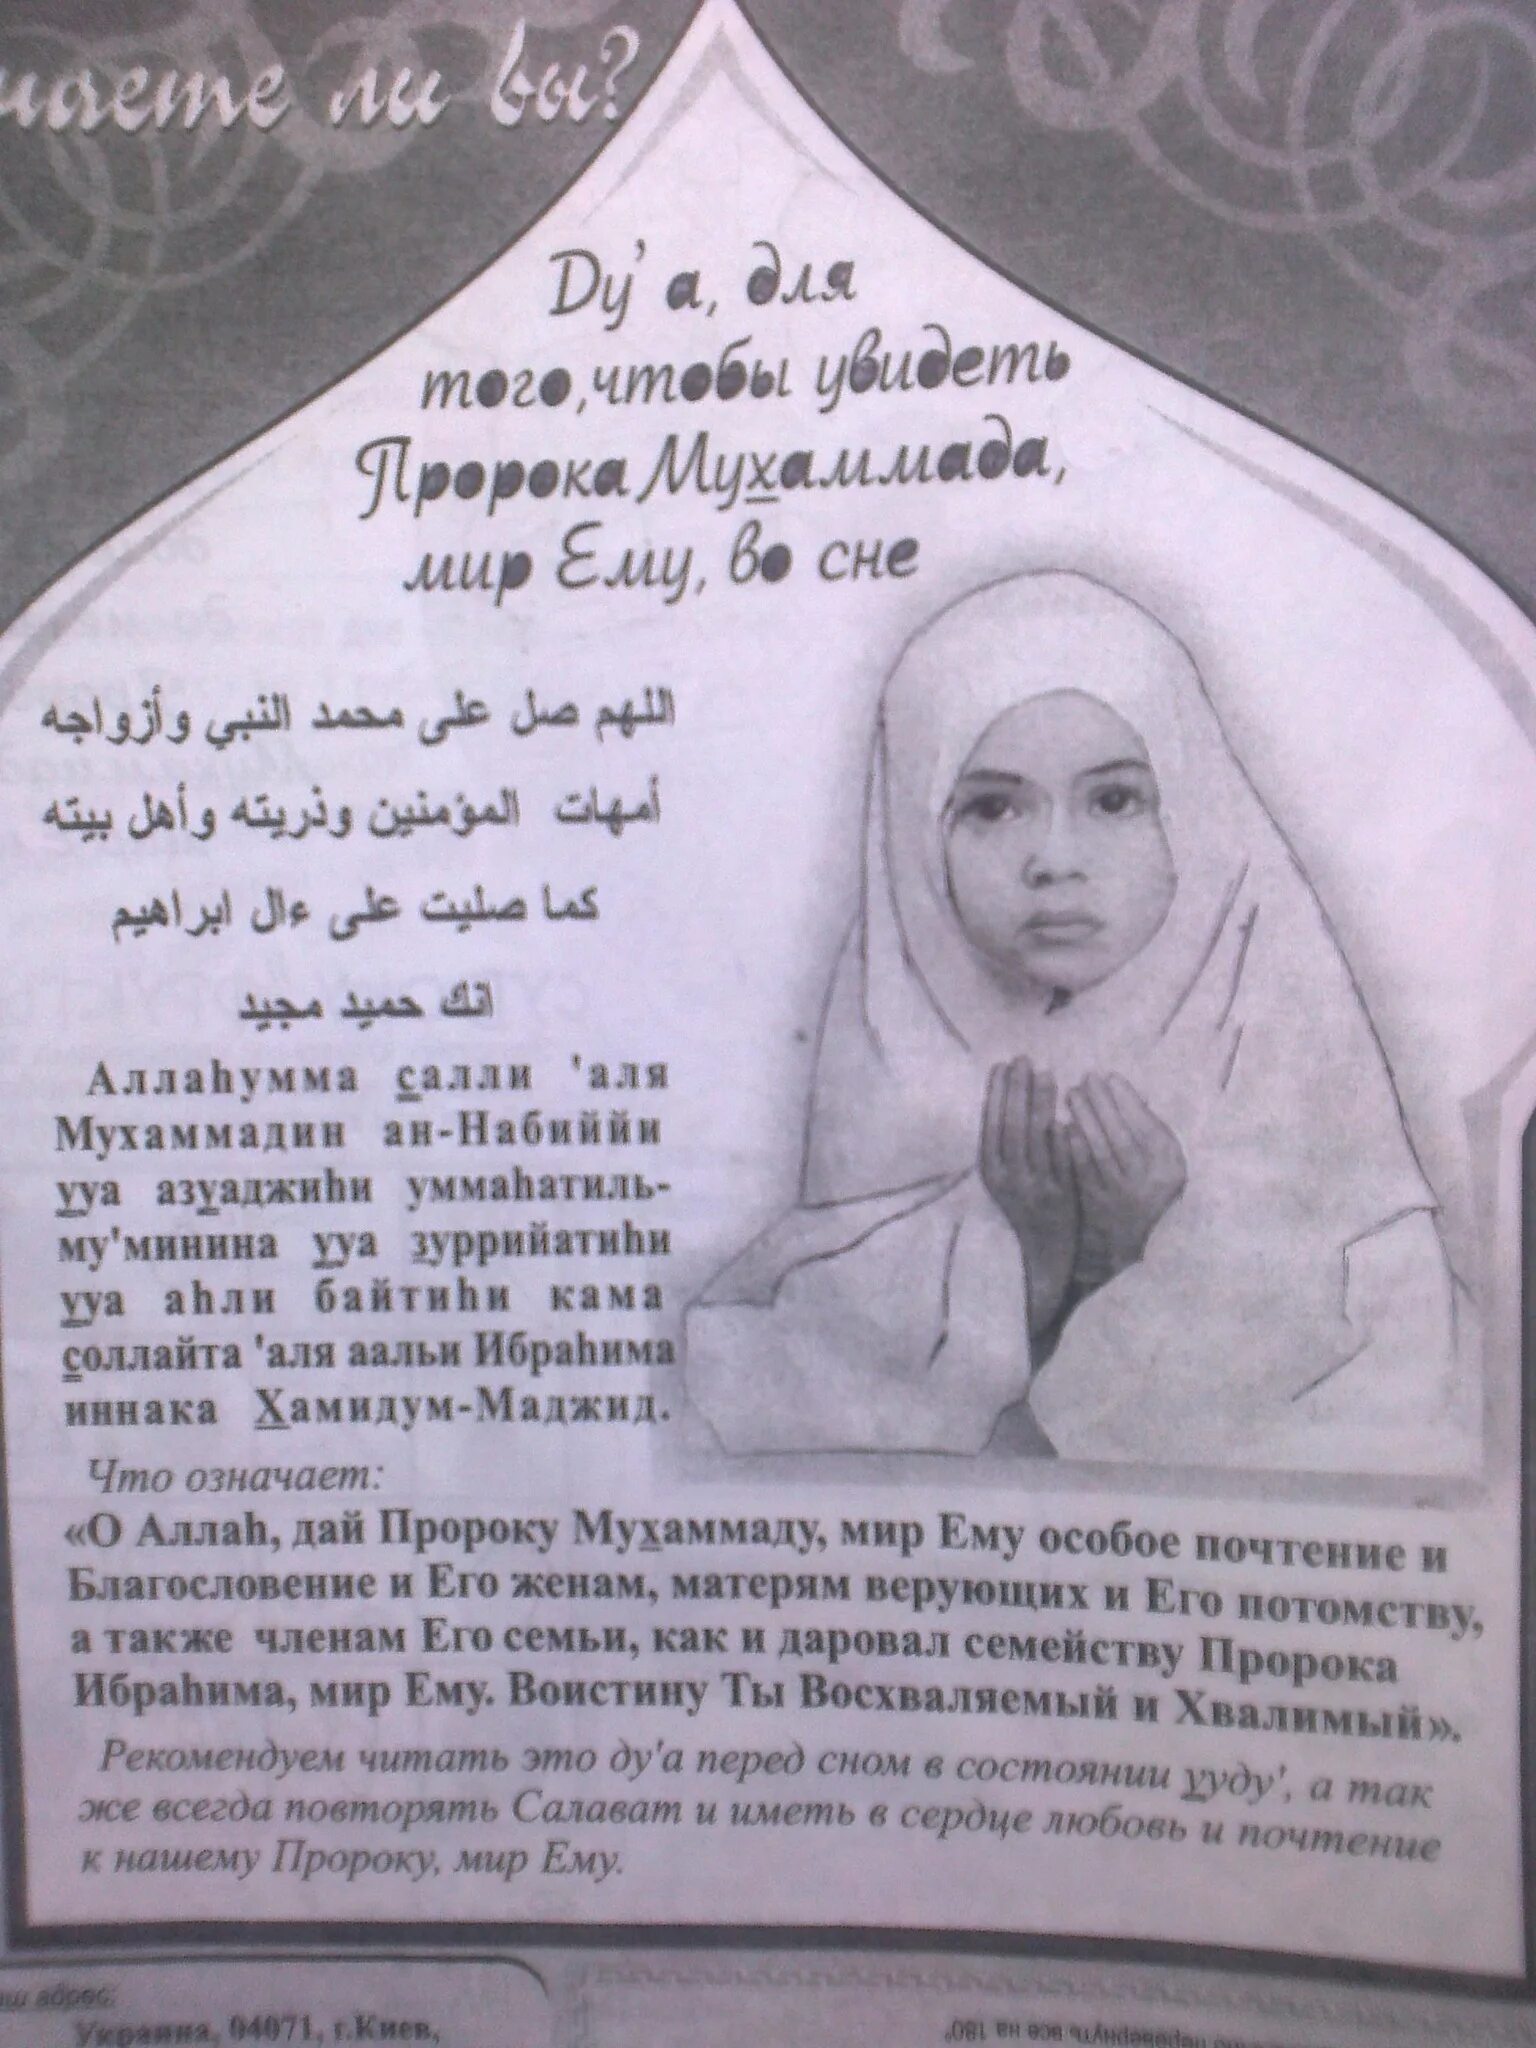 ли вы?
Ду'а, для
того,чтобы увидеть
Пророка Мухаммада,
мир Ему, во сне
اللهم صل على محمد النبي وأزواجه
أمهات المؤمنين وذريته وأهل بيته
كما صليت على ءال ابراهيم
انك حميد مجيد
Аллаһумма салли 'аля
Мухаммадин ан-Набиййи
ууа азуаджиһи уммаһатиль-
му'минина ууа зуррийатиһи
ууа аһли байтиһи кама
соллайта 'аля аальи Ибраһима
иннака Хамидум-Маджид.
Что означает:
«О Аллаһ, дай Пророку Мухаммаду, мир Ему особое почтение и
Благословение и Его женам, матерям верующих и Его потомству,
а также членам Его семьи, как и даровал семейству Пророка
Ибраһима, мир Ему. Воистину Ты Восхваляемый и Хвалимый».
Рекомендуем читать это ду'а перед сном в состоянии ууду', а так
же всегда повторять Салават и иметь в сердце любовь и почтение
к нашему Пророку, мир Ему.
адрес:
Украина, 04071, г.Киев,
перевернуть все на 180°